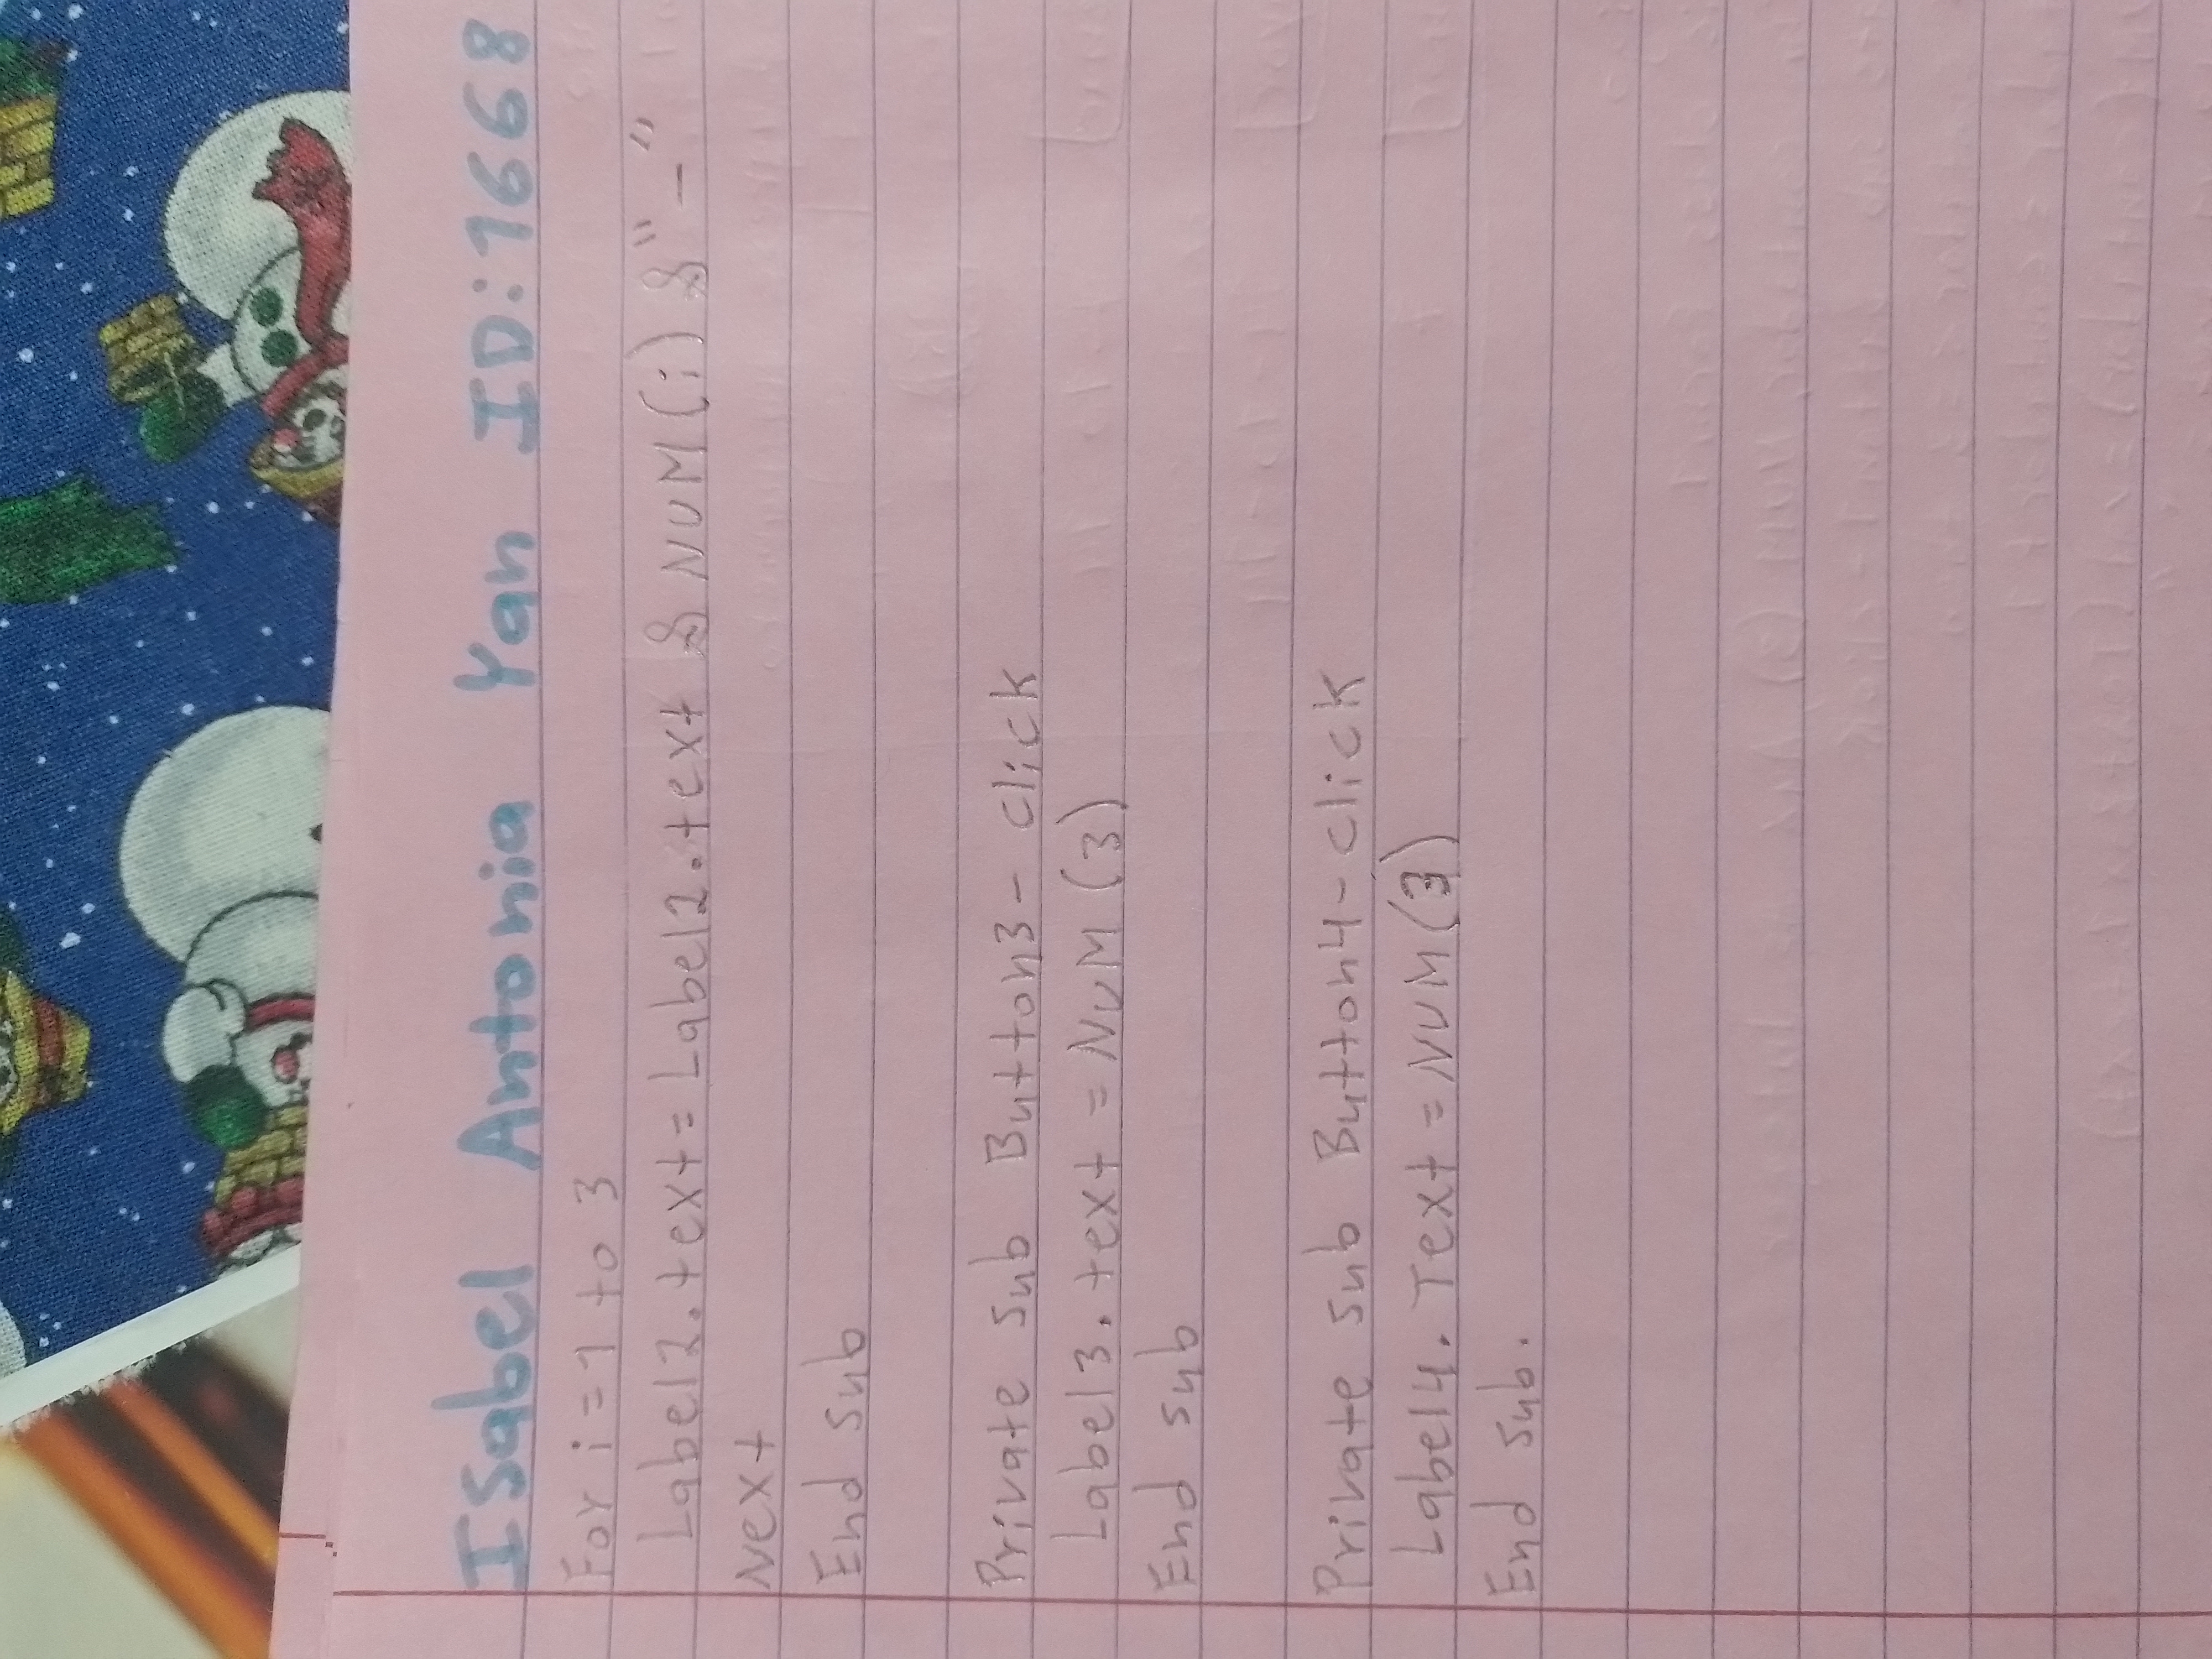 Isabel Antonia Yan ID:1668
For i=1 to 3
Label2.text=Label2.text & NUM(i) & "-"
Next
End sub
Private sub Button3-click
Label3.text = NUM(3)
End sub
Private sub Button4-click
Label4.Text = NUM(3)
End sub.